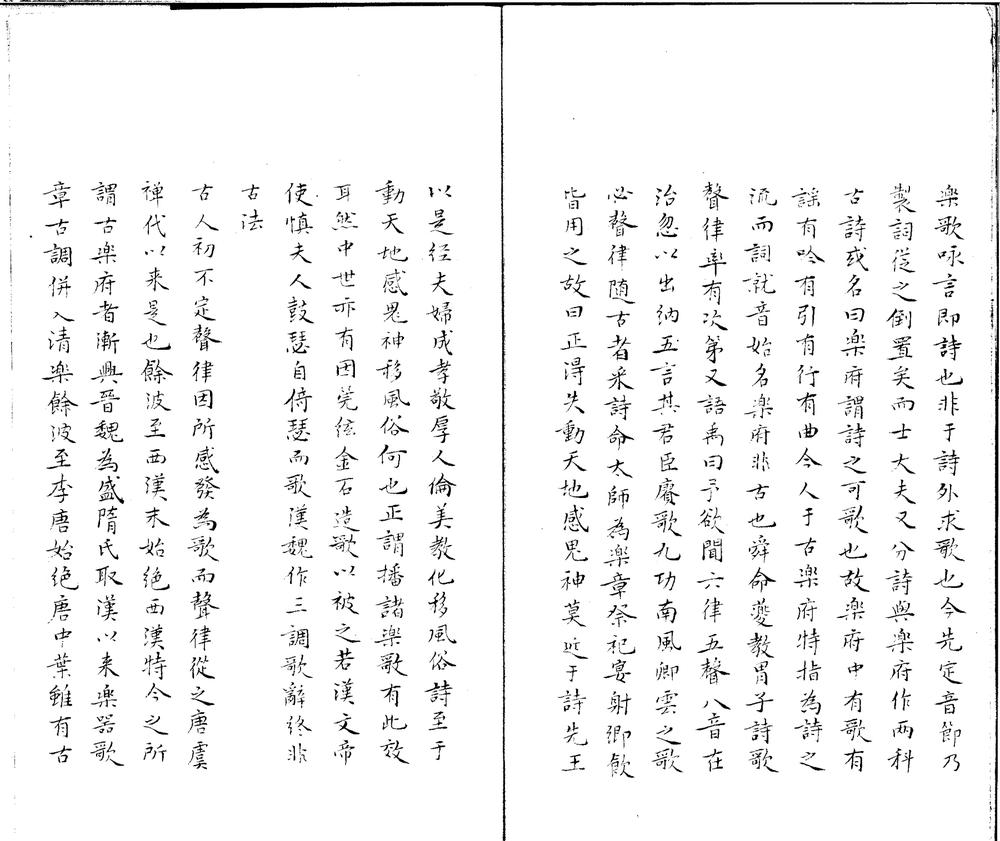 樂歌咏言即詩也非于詩外求歌也今先定音節乃
製詞從之倒置矣而士大夫又分詩與樂府作兩科
古詩或名曰樂府謂詩之可歌也故樂府中有歌有
謡有吟有引有行有曲今人于古樂府特指為詩之
流而詞就音始名樂府非古也舜命夔教胄子詩歌
聲律率有次第又語禹曰予欲聞六律五聲八音在
治忽以出納五言其君臣賡歌九功南風卿雲之歌
必聲律隨古者采詩命太師為樂章祭祀宴射鄉飲
皆用之故曰正得失動天地感鬼神莫近于詩先王
以是经夫婦成孝敬厚人倫美教化移風俗詩至于
動天地感鬼神移風俗何也正謂播諸樂歌有此效
耳然中世亦有因筦絃金石造歌以被之若漢文帝
使慎夫人鼓瑟自倚瑟而歌漢魏作三調歌辭終非
古法
古人初不定聲律因所感發為歌而聲律從之唐虞
禅代以来是也餘波至西漢末始绝西漢特今之所
謂古樂府者漸興晉魏為盛隋氏取漢以来樂器歌
章古調併入清樂餘波至李唐始绝唐中葉雖有古